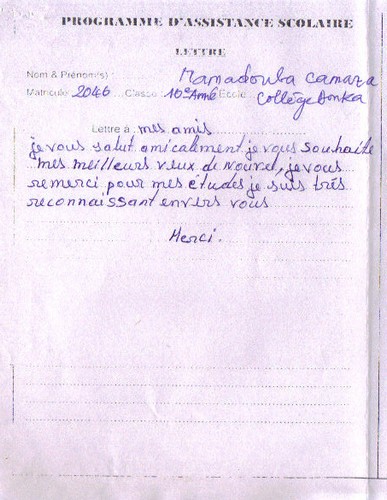 PROGRAMME D'ASSISTANCE SCOLAIRE
LETTRE
Nom & Prénom(s) : Mamadouba Camara
Matricule 2046 Classe 10e Année École : Collège Donka
Lettre à : mes amis
je vous salut amicalement je vous souhaite
mes meilleurs vœux de nouvel, je vous
remerci pour mes études je suis très
reconnaissant envers vous
Merci.